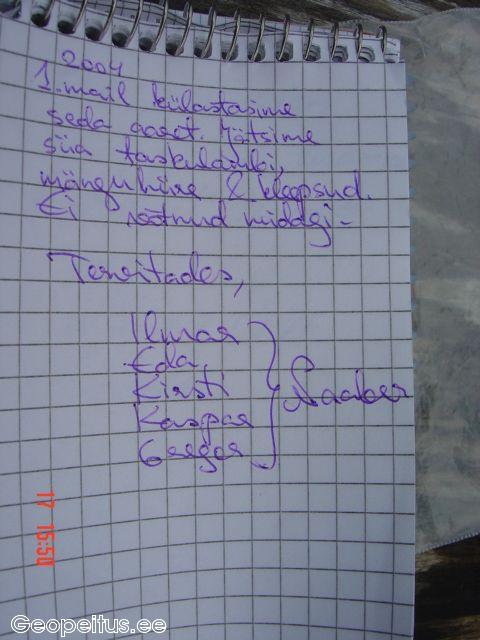 2004
1. mail külastasime
seda aaret. Jätsime
siia taskulambi,
mänguhiire 2 klopsud.
Ei võtnud midagi -
Tervitades,
Ilmar
Eda,
Kirsti
Kaspar
Gregor
Saaber
17 15:50
Geopeitus.ee